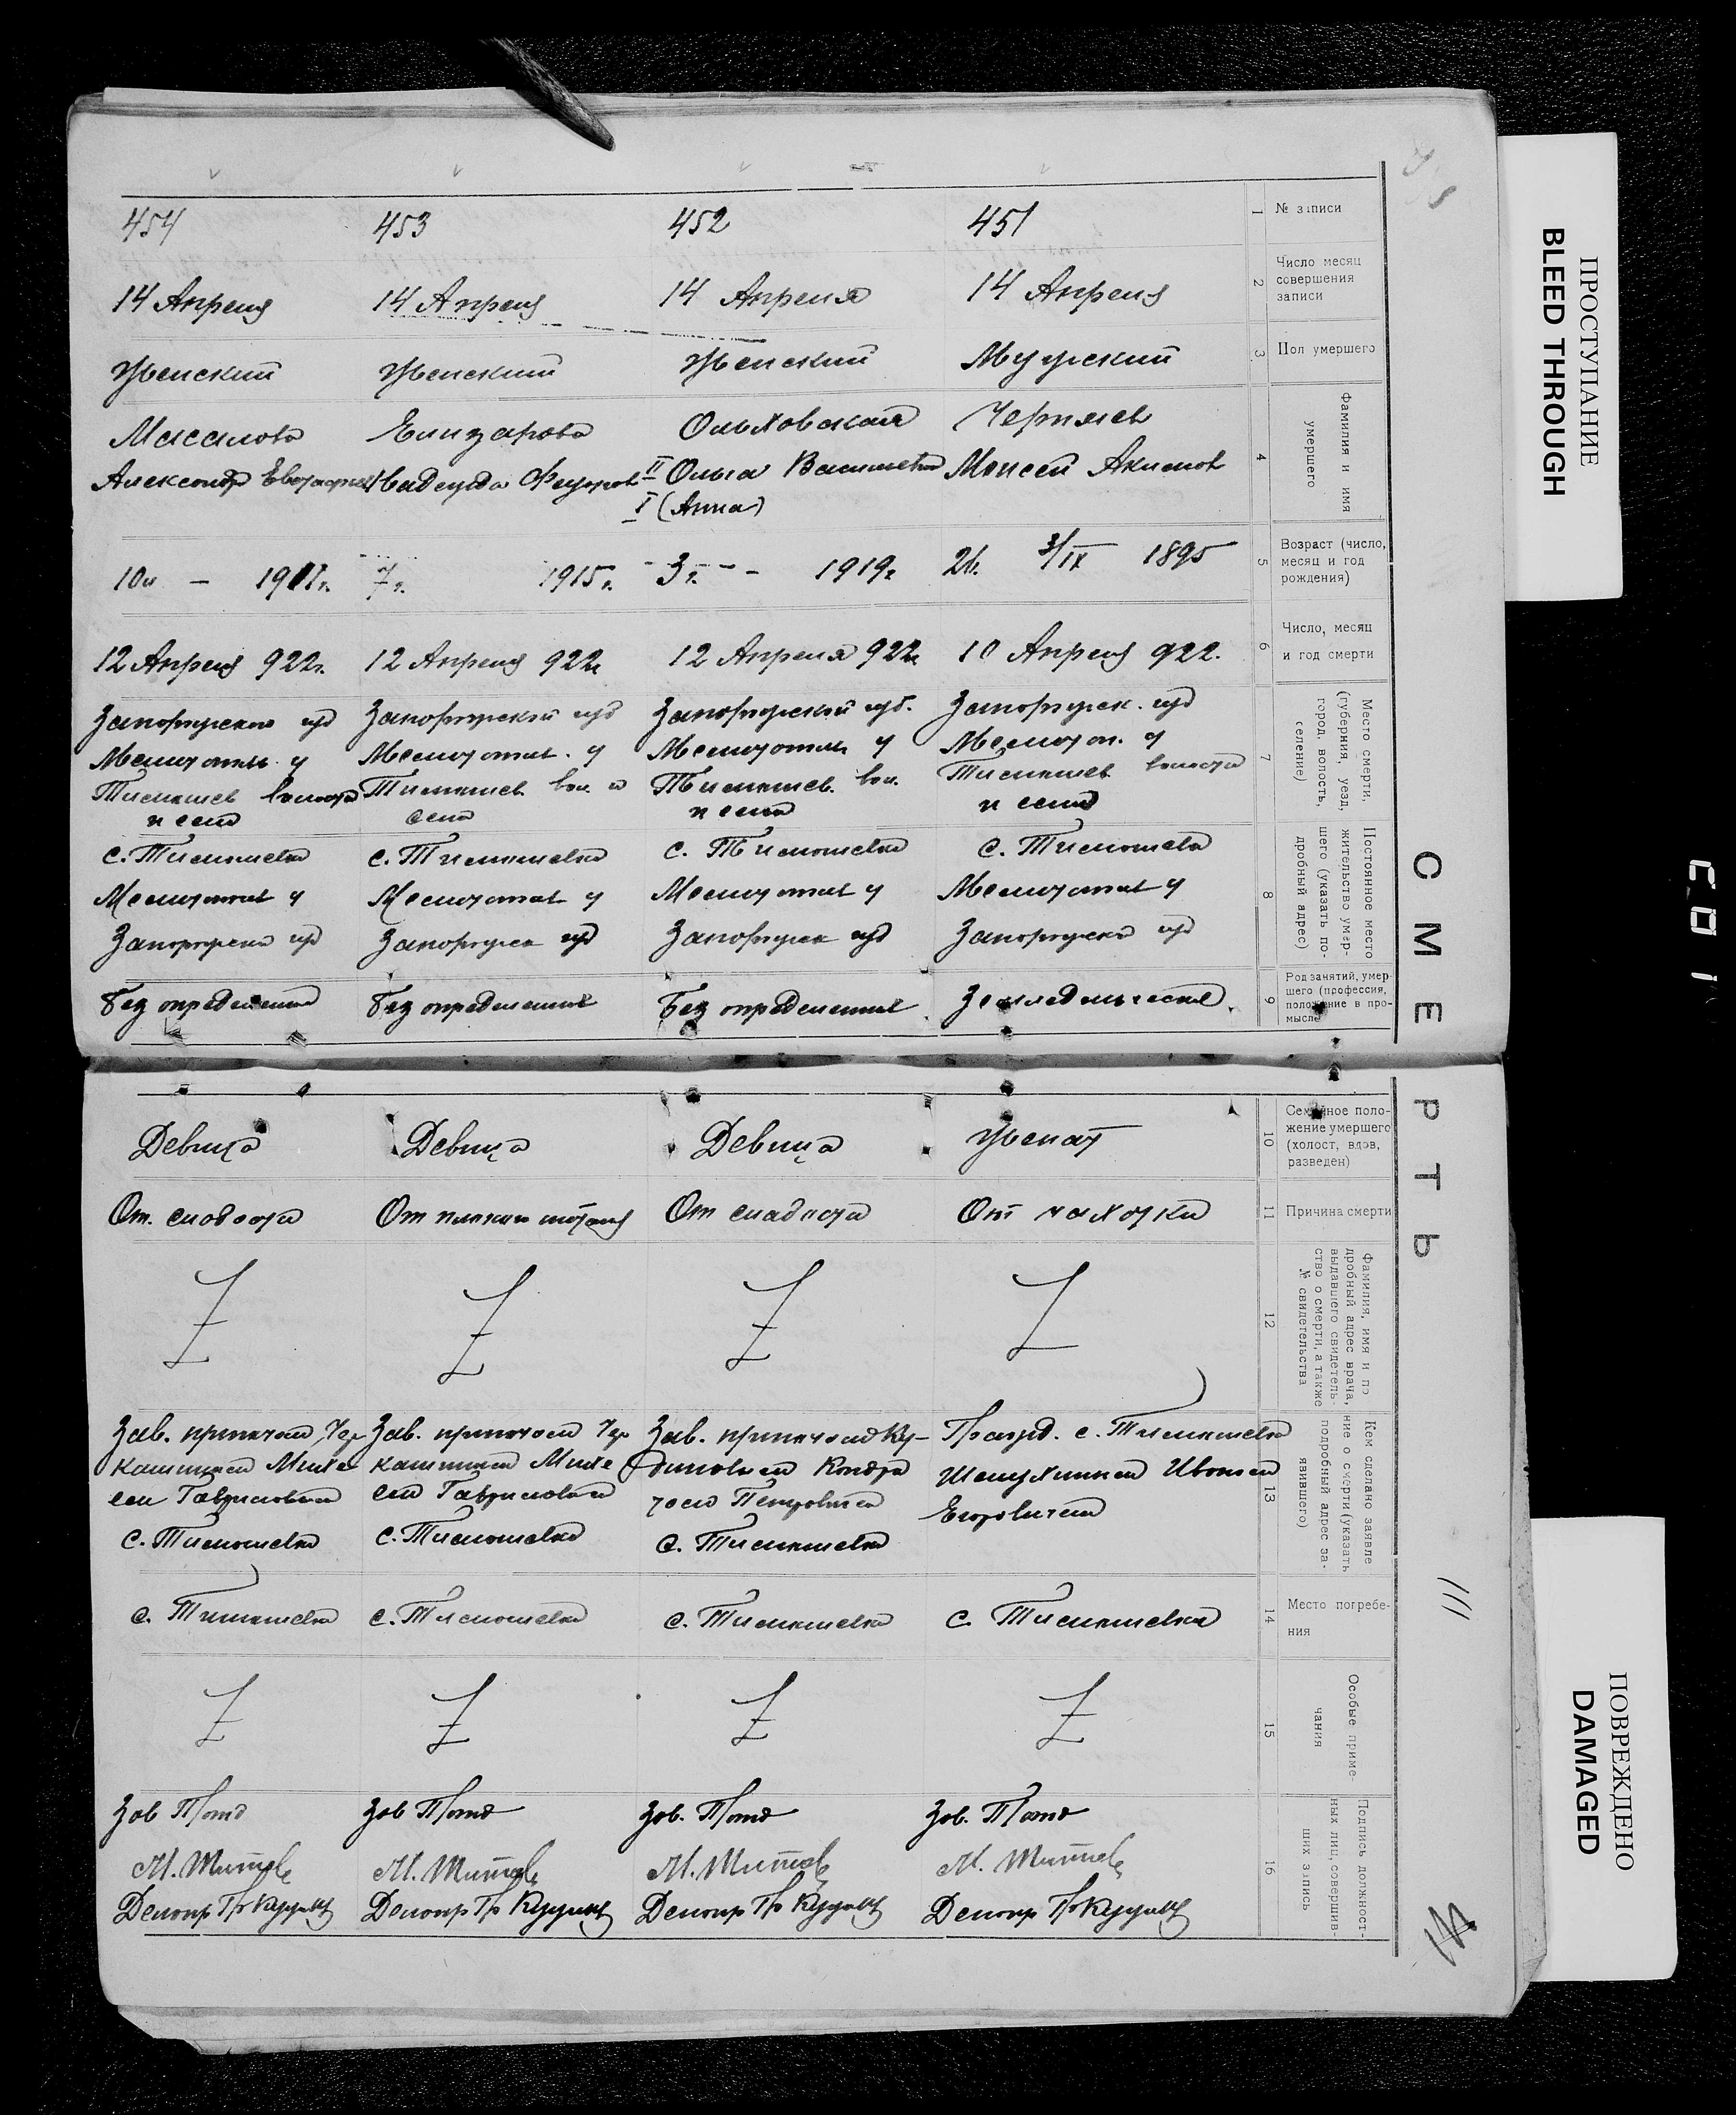 ПРОСТУПАНИЕ
BLEED THROUGH
ПОВРЕЖДЕНО
DAMAGED
СМЕРТЬ
1 № записи
451
452
453
454
2 Число месяц
совершения
записи
14 Апреля
14 Апреля
14 Апреля
14 Апреля
3 Пол умершего
Мужский
Женский
Женский
Женский
4 Фамилия и имя
умершего
Черняев
Моисей Акимов
Ольховская
II Ольга Васильевна
I (Анна)
Елизарова
Надежда Федоров
Масалова
Александр
5 Возраст (число,
месяц и год
рождения)
26. 3/IX 1895
3 г. - - 1919 г.
7 г. 1915 г.
10 - 1911 г.
6 Число, месяц
и год смерти
10 Апреля 922.
12 Апреля 922 г.
12 Апреля 922 г.
12 Апреля 922 г.
7 Место смерти,
(губерния, уезд,
город, волость,
селение)
Запорожск. губ
Мелитоп. у
Тимошев волости
и села
Запорожской губ.
Мелитопол у
Тимошев. вол.
и села
Запорожской губ
Мелитопол. у
Тимошев. вол. и
села
Запорожской губ
Мелитопол. у
Тимошев волости
и села
8 Постоянное место
жительство умер-
шего (указать по-
дробный адрес)
с. Тимошевка
Мелитопол у
Запорожской губ
с. Тимошевка
Мелитопол у
Запорожск губ
с. Тимошевка
Мелитопол у
Запорожск губ
с. Тимошевка
Мелитопол у
Запорожской губ
9 Род занятий, умер-
шего (профессия,
положение в про-
мысле
Земледельческие
Без определения
Без определения
Без определения
10 Семейное поло-
жение умершего
(холост, вдов,
разведен)
Женат
Девица
Девица
Девица
11 Причина смерти
От чахотки
От слабости
От
От слабости
12 Фамилия, имя и по
дробный адрес врача,
выдавшего свидетель-
ство о смерти, а также
№ свидетельства
13 Кем сделано заявле
ние о смерти (указать
подробный адрес за-
явившего)
Гражд. с. Тимошевка
Шелухиным Иваном
Егоровичем
Зав. приютом Ку-
диновым Кондра
том Петровичем
с. Тимошевка
Зав. приютом Чер
кашиным Михе
ем Гавриловым
с. Тимошевка
Зав. приютом Чер
кашиным Михе
ем Гавриловым
с. Тимошевка
14 Место погребе-
ния
с. Тимошевка
с. Тимошевка
с. Тимошевка
с. Тимошевка
15 Особые приме-
чания
16 Подпись должност-
ных лиц, совершив-
ших запись
Зав. П/отд
М.
Делопр
Зав. П/отд
М.
Делопр
Зав П/отд
М.
Делопр
Зав П/отд
М.
Делопр